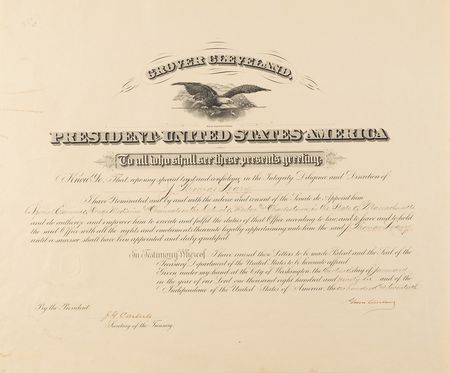 GROVER CLEVELAND,
PRESIDENT OF THE UNITED STATES OF AMERICA
To all who shall see these presents greeting
Know Ye, That reposing special trust and confidence in the Integrity Diligence and Discretion of
J. Thomas
I have Nominated and by and with the advice and consent of the Senate do Appoint him
in the State of Massachusetts
and do authorize and empower him to execute and fulfil the duties of that Office according to law, and to have and to hold
the said Office with all the rights and emoluments thereunto legally appertaining unto him the said J. Thomas
until a successor shall have been appointed and duly qualified.
In Testimony Whereof I have caused these Letters to be made Patent and the Seal of the
Treasury Department of the United States to be hereunto affixed
Given under my hand at the City of Washington the day of January
in the year of our Lord one thousand eight hundred and ninety and of the
Independence of the United States of America, the one hundred and
Grover Cleveland
By the President:
J. G. Carlisle
Secretary of the Treasury.